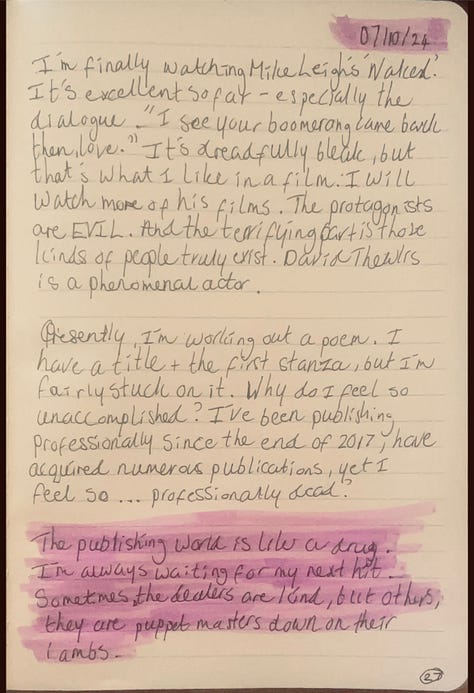 07/10/24
I'm finally watching Mike Leigh's 'Naked'.
It's excellent so far - especially the
dialogue - "I see your boomerang came back
then, love." It's dreadfully bleak, but
that's what I like in a film. I will
watch more of his films. The protagonists
are EVIL. And the terrifying part is those
kinds of people truly exist. David Thewlis
is a phenomenal actor.
Presently, I'm working out a poem. I
have a title + the first stanza, but I'm
fairly stuck on it. Why do I feel so
unaccomplished? I've been publishing
professionally since the end of 2017, have
acquired numerous publications, yet I
feel so ... professionally dead?
The publishing world is like a drug.
I'm always waiting for my next hit.
Sometimes, the dealers are kind, but others,
they are puppet masters down on their
lambs.
27